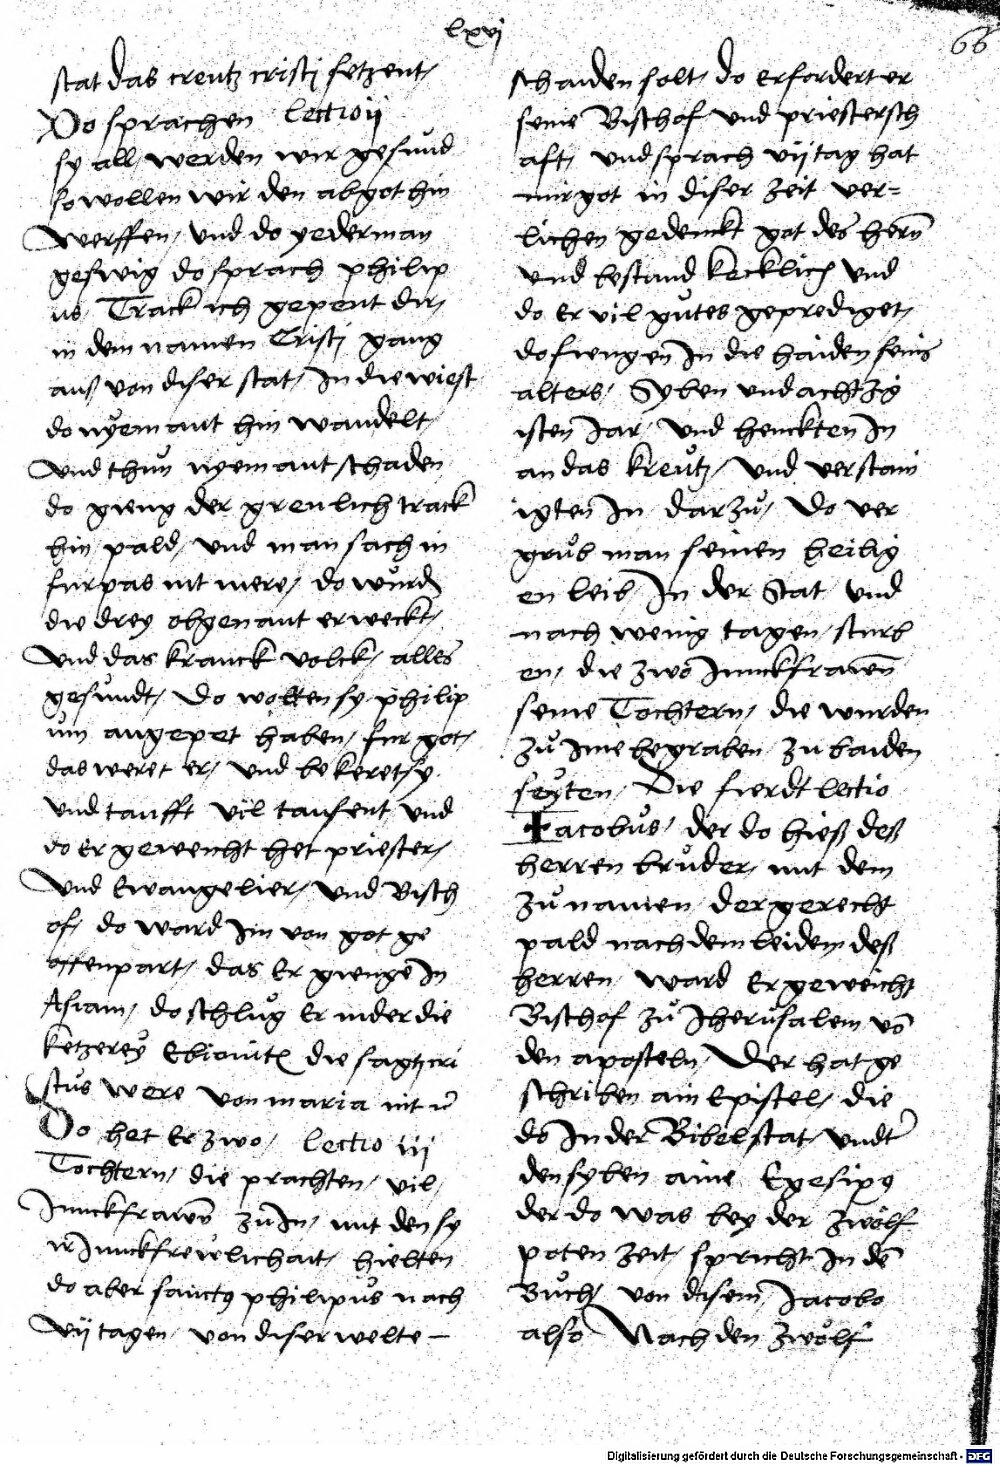 lxvj
66
stat das creutz cristj setzent/
Do sprachen Lectio ij
sy all werden wir gesund
so wollen wir den abgot hin
werffen/ und do yederman
geswig do sprach philip
us/ Track ich gepeut dir/
in dem namen Cristj gang
auß von diser stat/ In die wiest
do nyemant hin wandelt/
und thun nyemant schaden
do gieng der greulich track
hin pald/ und man sach in
furpas nit mere/ do wurdn
die drey obgenant erweckt/
und das kranck volck/ alles
gesundt/ Do wolten sy philip
um angepet haben/ fur got/
das weret er/ und bekeret sy
und taufft vil tausent und
do er geweicht het priester/
und Ewangelier/ und Bisch
of/ do ward im von got ge
offenpart/ das Er gienge In
Asiam/ do schlug Er nider die
ketzerey Ebionite die sagtz cri
stus were von maria nit
Do het Er zwo/ Lectio iij
Tochtern/ die prachten/ vil
Junckfrawen zu In/ mit den sy
ir Junckfrewlichait/ hielten
do aber sanctus philipus nach
vij tagen/ von diser welte –
schaiden solt/ do erfordert er
seine Bischof und priestersch
aft/ und sprach vij tag hat
mir got in diser zeit ver=
lichen gedenckt got des hern
und bestand kecklich und
do Er vil gutes geprediget/
do fiengen In die haiden seins
alters/ Syben und achtzig
isten Jar/ und henckten In
an das kreutz/ und verstain
igten In darzu/ Do ver
grub man seinen heilig
en leib/ In der Stat/ und
nach wenig tagen/ sturb
en/ die zwo Junckfrawen
seine Tochtern/ die wurden
zu Ime begraben/ zu baiden
seyten/ Die fierdt lectio
Jacobus/ der do hieß deß
herren bruder/ mit dem
zu namen der gerecht
pald nach dem leidem deß
herren/ ward Er geweicht
Bischof zu Jherusalem vo
den aposteln/ Der hat ge
schriben ain Epistel/ die
do In der Bibel stat/ undter
den syben aine Egesipus
der do was bey der zwolf
poten zeit/ spricht In de
Buch/ von disem/ Jacobo
also Nach den zwolf
Digitalisierung gefördert durch die Deutsche Forschungsgemeinschaft - DFG